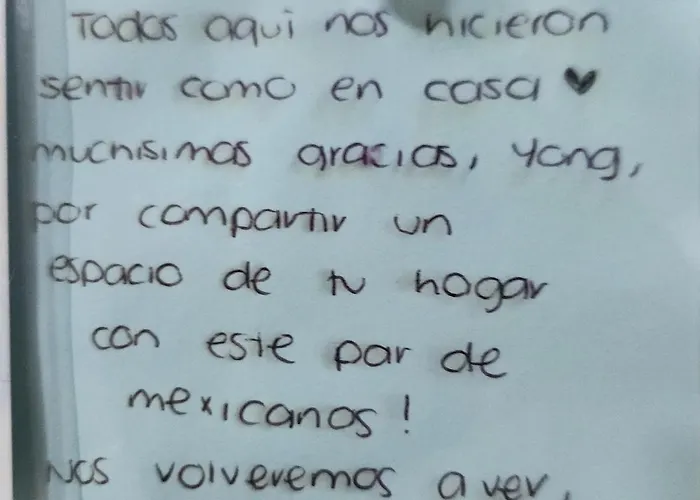 Todos aqui nos hicieron
sentir como en casa ♥
muchisimas gracias, Yang,
por compartir un
espacio de tu hogar
con este par de
mexicanos!
Nos volveremos a ver.